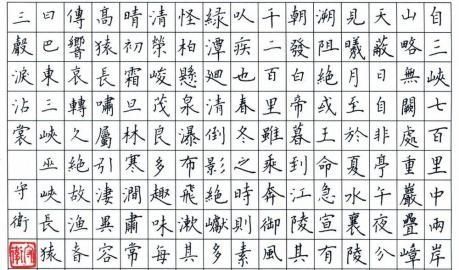 自三峽七百里中兩岸
山略無闕處重巖疊嶂
天蔽日自非亭午夜分
見曦月至於夏水襄陵
溯阻絕或王命急宣有
朝發白帝暮到江陵其
千二百里雖乘奔御風
以疾也春冬之時則素
綠潭迴清倒影絕巘多
怪柏懸泉瀑布飛漱其
清榮峻茂良多趣味每
晴初霜旦林寒澗肅常
高猿長嘯屬引淒異容
傳響哀轉久絕故漁音
曰巴東三峽巫峽長猿
三聲淚沾裳 守衛